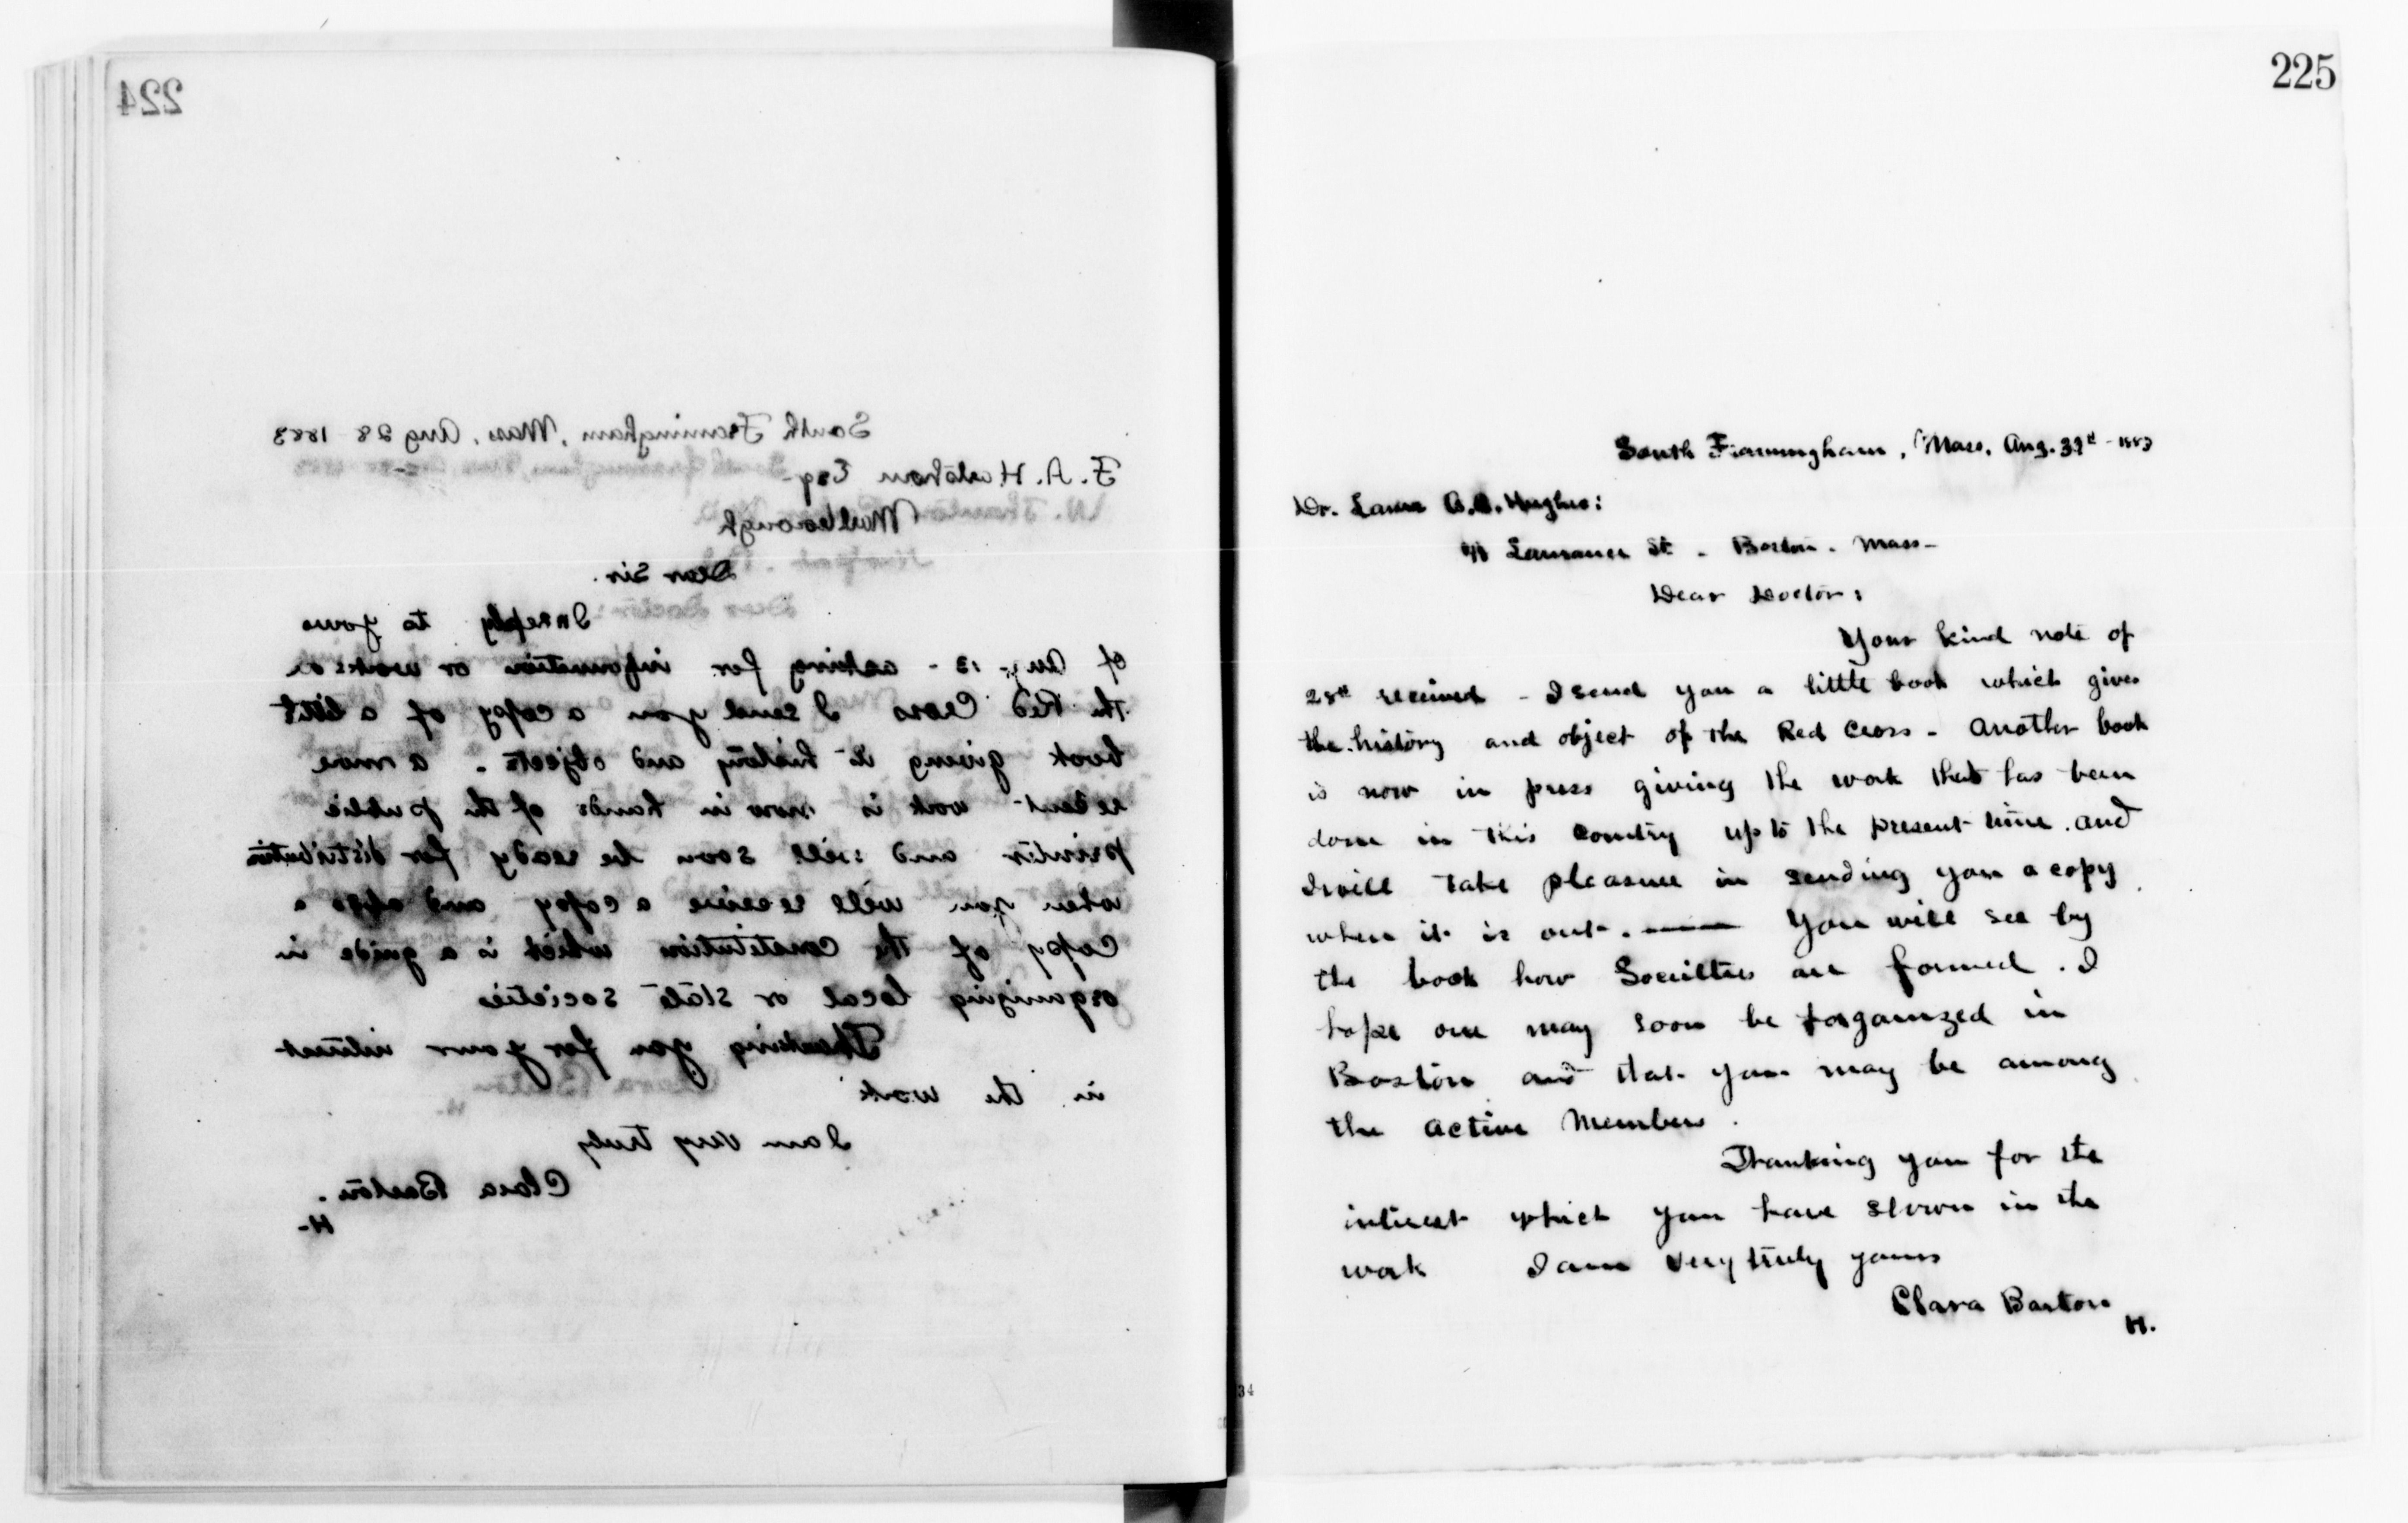 224
South Framingham, Mass, Aug 28 1883
F. A. Hutchorn Esq
Marlborough
Dear Sir.
In reply to yours
of Aug. 13 - asking for information or works on
the Red Cross I send you a copy of a little
book giving its history and objects. a more
recent work is now in hands of the public
printer and will soon be ready for distribution
when you will receive a copy and also a
copy of the constitution which is a guide in
organizing local or state societies
Thanking you for your interest
in the work
I am very truly
Clara Barton.
H-
225
South Framingham, Mass. Aug. 1883
Dr. Laura Hughes:
St. Boston. Mass-
Dear Doctor:
Your kind note of
28th received - I send you a little book which gives
the history and object of the Red Cross - Another book
is now in press giving the work that has been
done in this country up to the present time. and
I will take pleasure in sending you a copy
when it is out. You will see by
the book how Societies are formed. I
hope one may soon be organized in
Boston and that you may be among
the active Members.
Thanking you for the
interest which you have shown in the
work I am very truly yours
Clara Barton
H.
34